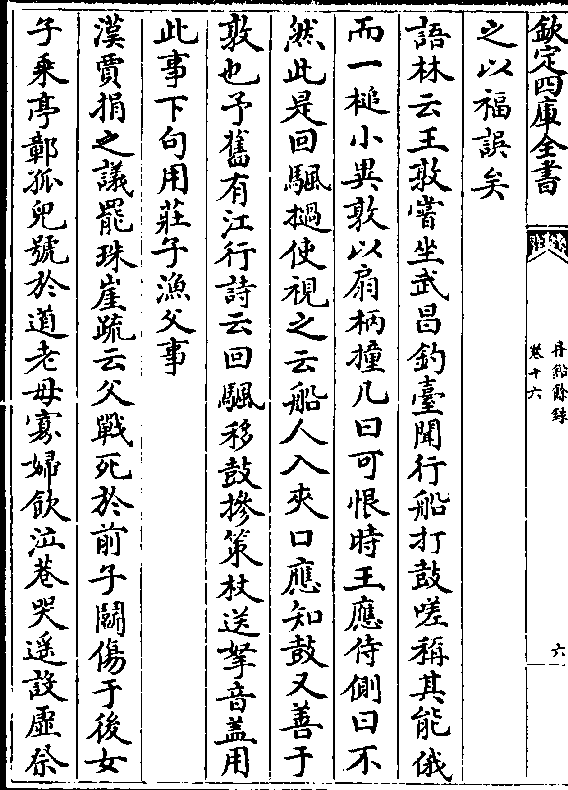 欽定四庫全書
丹鉛餘錄
卷十六
六
之以福誤矣
語林云王敦嘗坐武昌釣臺聞行船打鼓嗟稱其能俄
而一槌小異敦以扇柄撞几曰可恨時王應侍側曰不
然此是回颿撾使視之云船人入夾口應知鼓又善于
敦也予舊有江行詩云回颿移鼓摻策杖送拏音盖用
此事下句用莊子漁父事
漢賈捐之議罷珠崖疏云父戰死於前子鬬傷于後女
子乗亭鄣孤兒號於道老母寡婦飲泣巷哭遥設虛祭